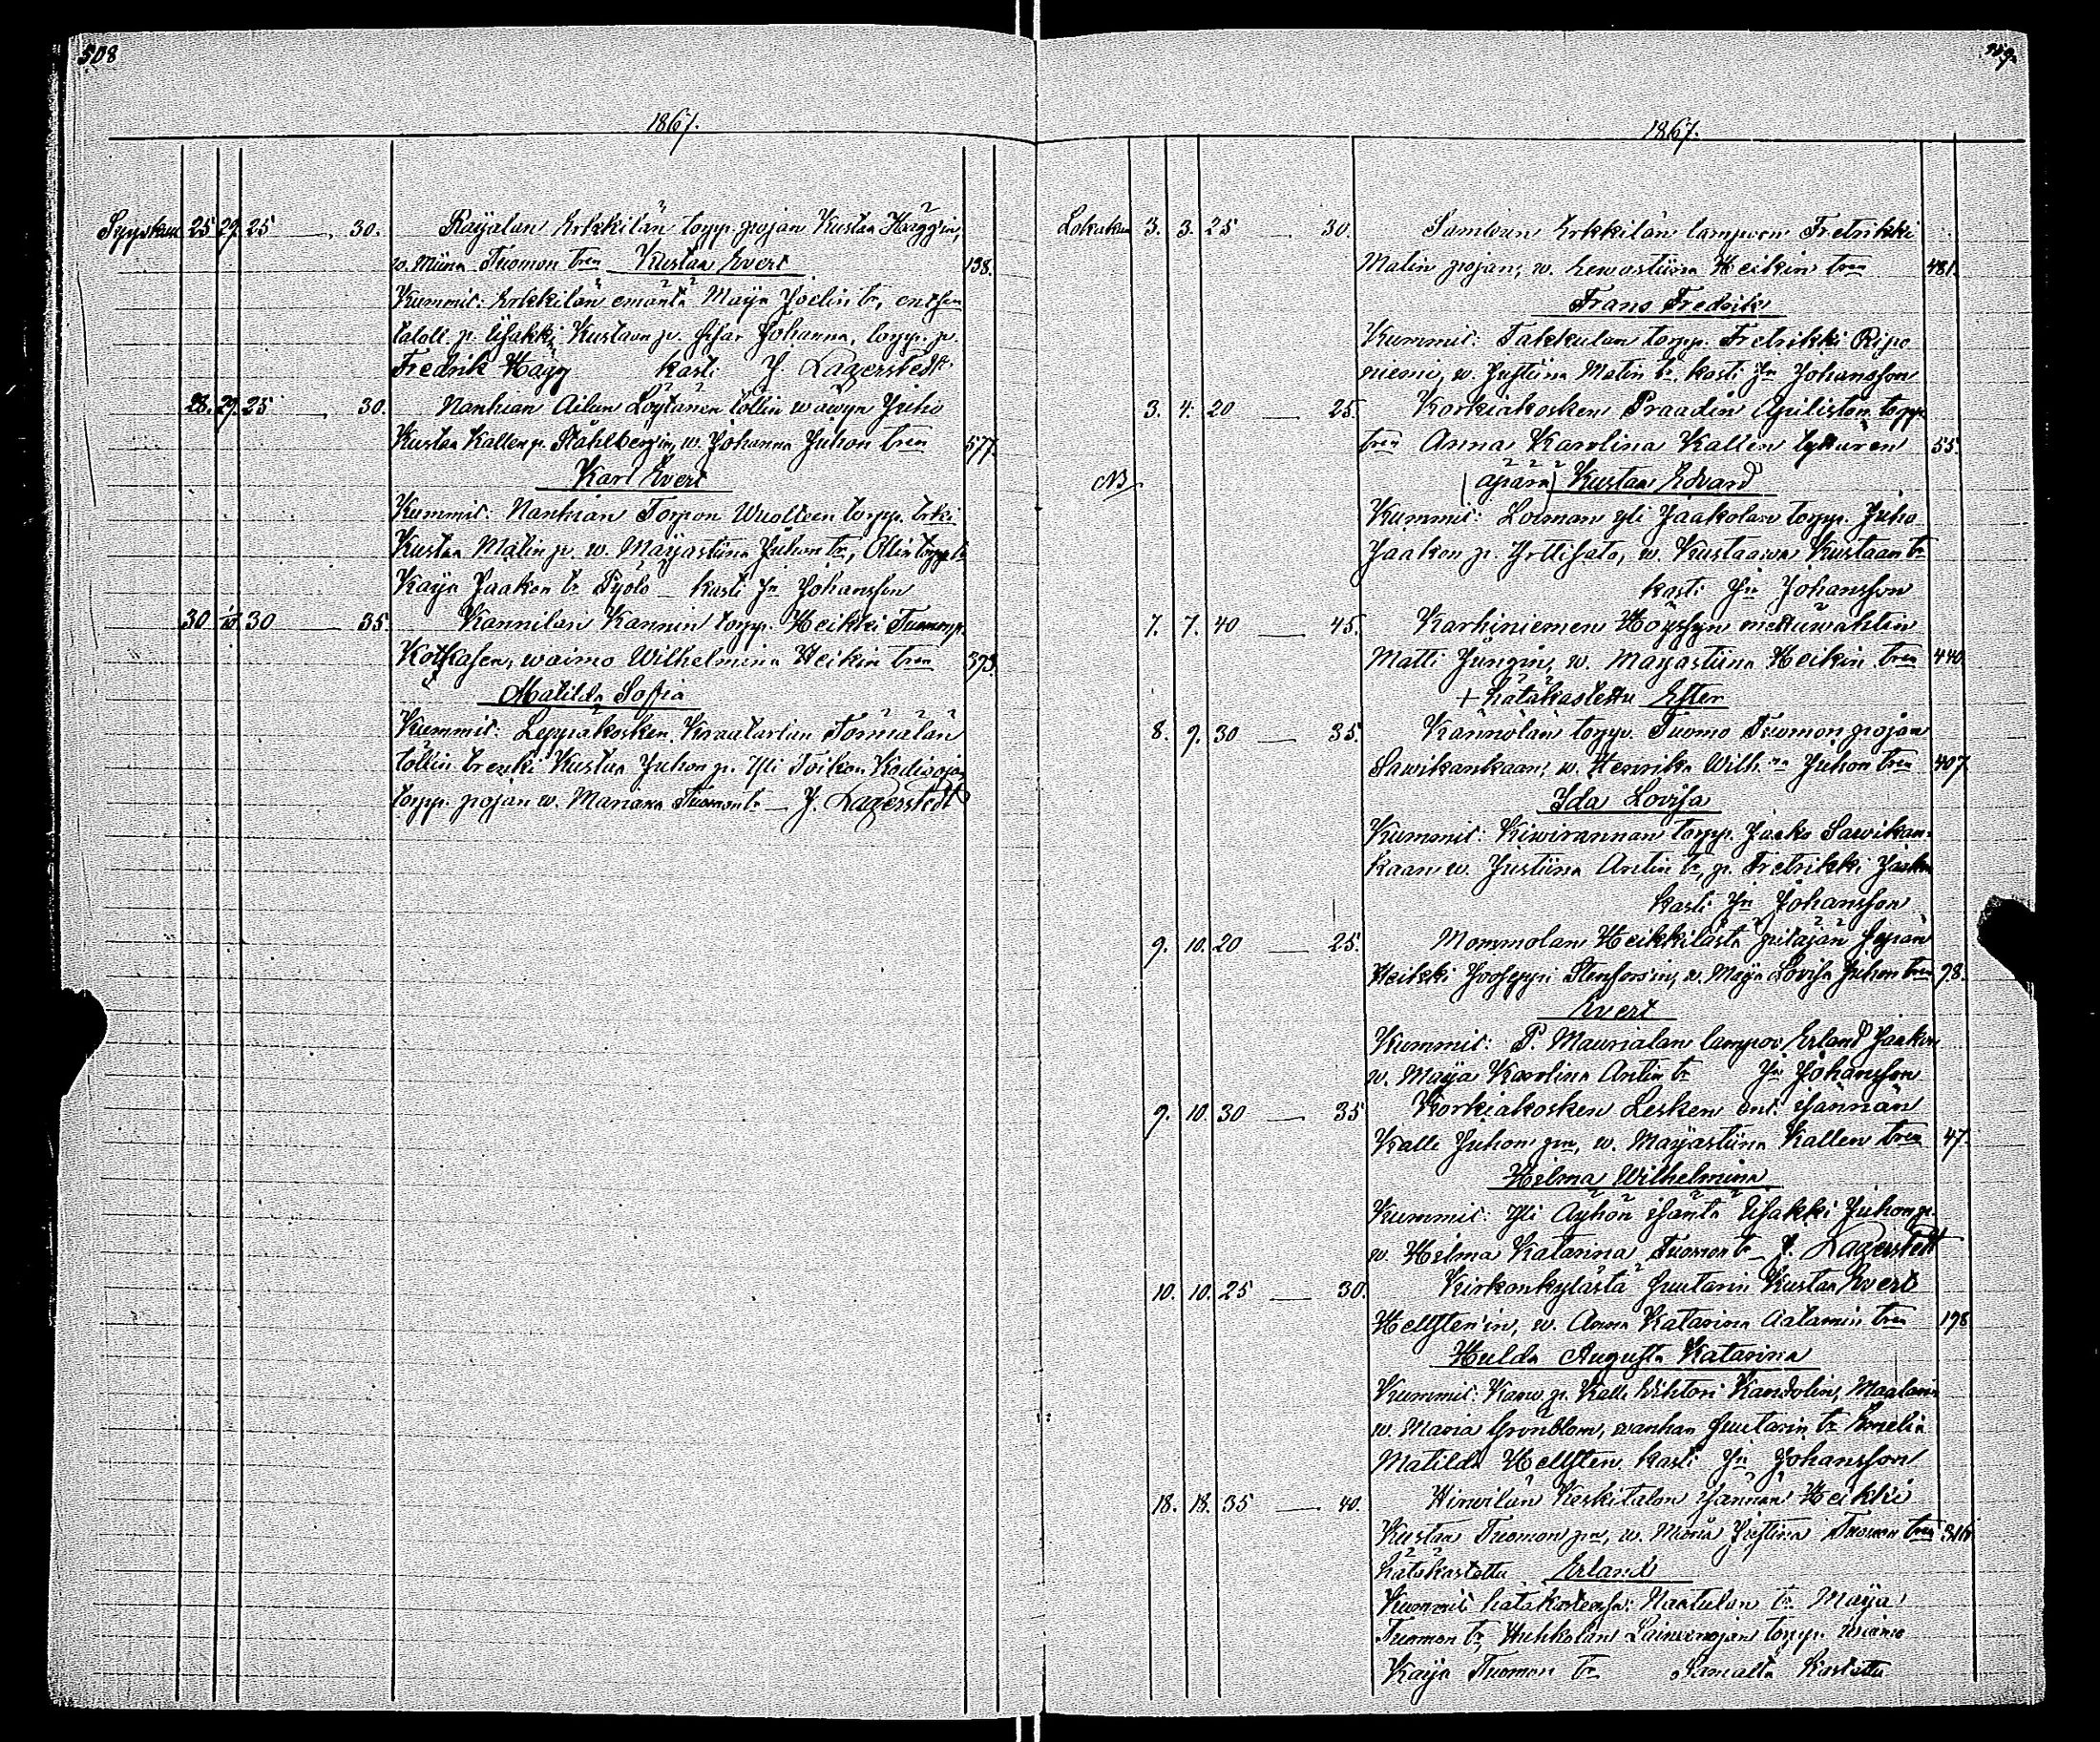 508
1867.
Syyskuu 25 29. 25 — 30. Raijalan Erkkilän torpp. pojan Kustaa Häggin,
w. Miina Tuomon tren Kustaa Evert 138.
Kummit: Erkkilän emäntä Maija Joelin tr, entisen
taloll. p. Isakki Kustaan p. sisar Johanna, torpp. p.
Fredrik Hägg kasti J. Lagerstedt
28. 29. 25 — 30. Nanhian Ailan Löytänen töllin wäwyn Juho
Kustaa Kallen p. Ståhlbergin, w. Johanna Juhon tren 577.
Karl Evert
Kummit: Nanhian Torpon Wuolteen torpp. trki
Kustaa Matin p. w. Marjastiina Juhon tr, Ollin torpp. tr
Kaija Jaakon tr Työlö – kasti Jn Johansson
30 30 — 35 Kannilan Kannin torpp. Heikki Tuomon p.
Kotkasen, waimo Wilhelmina Heikin tren 393.
Matilda Sofia
Kummit: Leppäkosken Kraatarlan Törmälän
töllin trenki Kustaa Juhon p. Yli Toikan Kodisojan
torpp. pojan w. Mariana Tuomon tr – J. Lagerstedt
509.
1867.
Lokakuu 3. 3. 25 — 30. Sambun Erkkilän lampuon Fretrikki
Matin pojan, w. Eewastiina Heikin tren 481.
Frans Fredrik
Kummit: Takkulan torpp. Fretrikki Ripo
niemi, w. Justiina Matin tr. kasti Jn Johansson
3. 4. 20 — 25. Korkiakosken Praadin Apiliston torpp.
tren Anna Karolina Kallen tyttären 55.
NB (äpärä) Kustaa Edvard
Kummit: Loiman yli Jaakolan torpp. Juho
Jaakon p. Yrttisalo, w. Kustaawa Kustaan tr
kasti Jn Johansson
7. 7. 40 — 45. Karhiniemen Höyssyn mettuwahtin
Matti Jungin, w. Marjastiina Heikin tren 440.
+ hätäkastettu Ester
8. 9. 30 — 35. Kännölän torpp. Tuomo Tuomon pojan
Sawikankaan, w. Henrika Wilh.na Juhon tren 407.
Ida Lovisa
Kummit: Kiwirannan torpp. Jaako Sawikan-
kaan w. Justiina Antin tr, p. Fretrikki Jaakon
kasti Jn Johansson
9. 10. 20 — 25. Mommolan Heikkilästä pitäjän sepän
Heikki Jooseppi Stenforsin, w. Maija Lovisa Juhon tren 98.
Evert
Kummit: P. Maurialan lampuo. Erland Jaakon
w. Maija Karolina Antin tr Jn Johansson
9. 10. 30 — 35 Korkiakosken Lesken ent. isännän
Kalle Juhon pn, w. Marjastiina Kallen tren 47.
Hilma Wilhelmina
Kummit: Yli Äyhön isäntä Isakki Juhon p.
w. Helma Katarina Tuomon tr – J. Lagerstedt
10. 10. 25 — 30. Kirkonkylästä suutarin Kustaa Evert
Hellsten'in, w. Anna Katarina Aatamin tren 198
Hulda Augusta Katarina
Kummit: Kanw. p. Kalle Wihtori Kandolin, Maalarin
w. Maria Grönblom, wanhan suutarin tr Emelia
Matilda Hellsten kasti Jn Johansson
18. 18. 35 — 40. Hirwilän Keskitalon isännän Heikki
Kustaa Tuomon pn, w. Maria Justiina Tuomon tren
hätäkastettu Erland
Kummit hätäkasteessa: Naatulan tr. Maija
Tuomon tr, Huhkolan torpp. waimo
Kaija Tuomon tr Samalta Kastettu